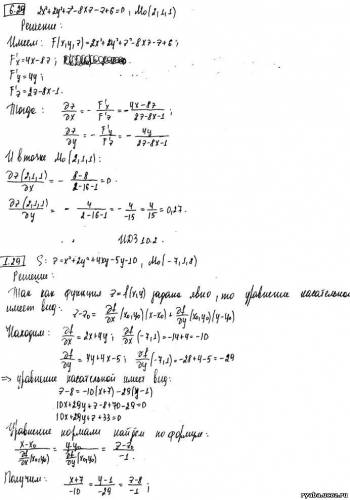 6.29 2x²+2y²+z²-8xz-z+6=0, M₀(2,1,1)
Решение:
Имеем: F(x,y,z)=2x²+2y²+z²-8xz-z+6
F'x=4x-8z;
F'y=4y;
F'z=2z-8x-1.
Тогда: ∂z/∂x = -F'x/F'z = -(4x-8z)/(2z-8x-1);
∂z/∂y = -F'y/F'z = -4y/(2z-8x-1).
И в точке M₀(2,1,1):
∂z(2,1,1)/∂x = -(8-8)/(2-16-1) = 0.
∂z(2,1,1)/∂y = -4/(2-16-1) = -4/-15 = 4/15 = 0,27.
ИДЗ 10.2
1.29 S: z=x²+2y²+4xy-5y-10, M₀(-7,1,8)
Решение:
Так как функция z=f(x,y) задана явно, то уравнение касательной
имеет вид: z-z₀ = ∂f/∂x(x₀,y₀)(x-x₀)+∂f/∂y(x₀,y₀)(y-y₀)
Находим: ∂f/∂x=2x+4y; ∂f/∂x(-7,1)=-14+4=-10
∂f/∂y=4y+4x-5; ∂f/∂y(-7,1)=-28+4-5=-29
⇒ уравнение касательной имеет вид:
z-8=-10(x+7)-29(y-1)
10x+29y+z-8+70-29=0
10x+29y+z+33=0
Уравнение нормали найдем по формуле:
(x-x₀)/(∂f/∂x(x₀,y₀)) = (y-y₀)/(∂f/∂y(x₀,y₀)) = (z-z₀)/-1.
Получим: (x+7)/-10 = (y-1)/-29 = (z-8)/-1;
ryaba.ucoz.ru